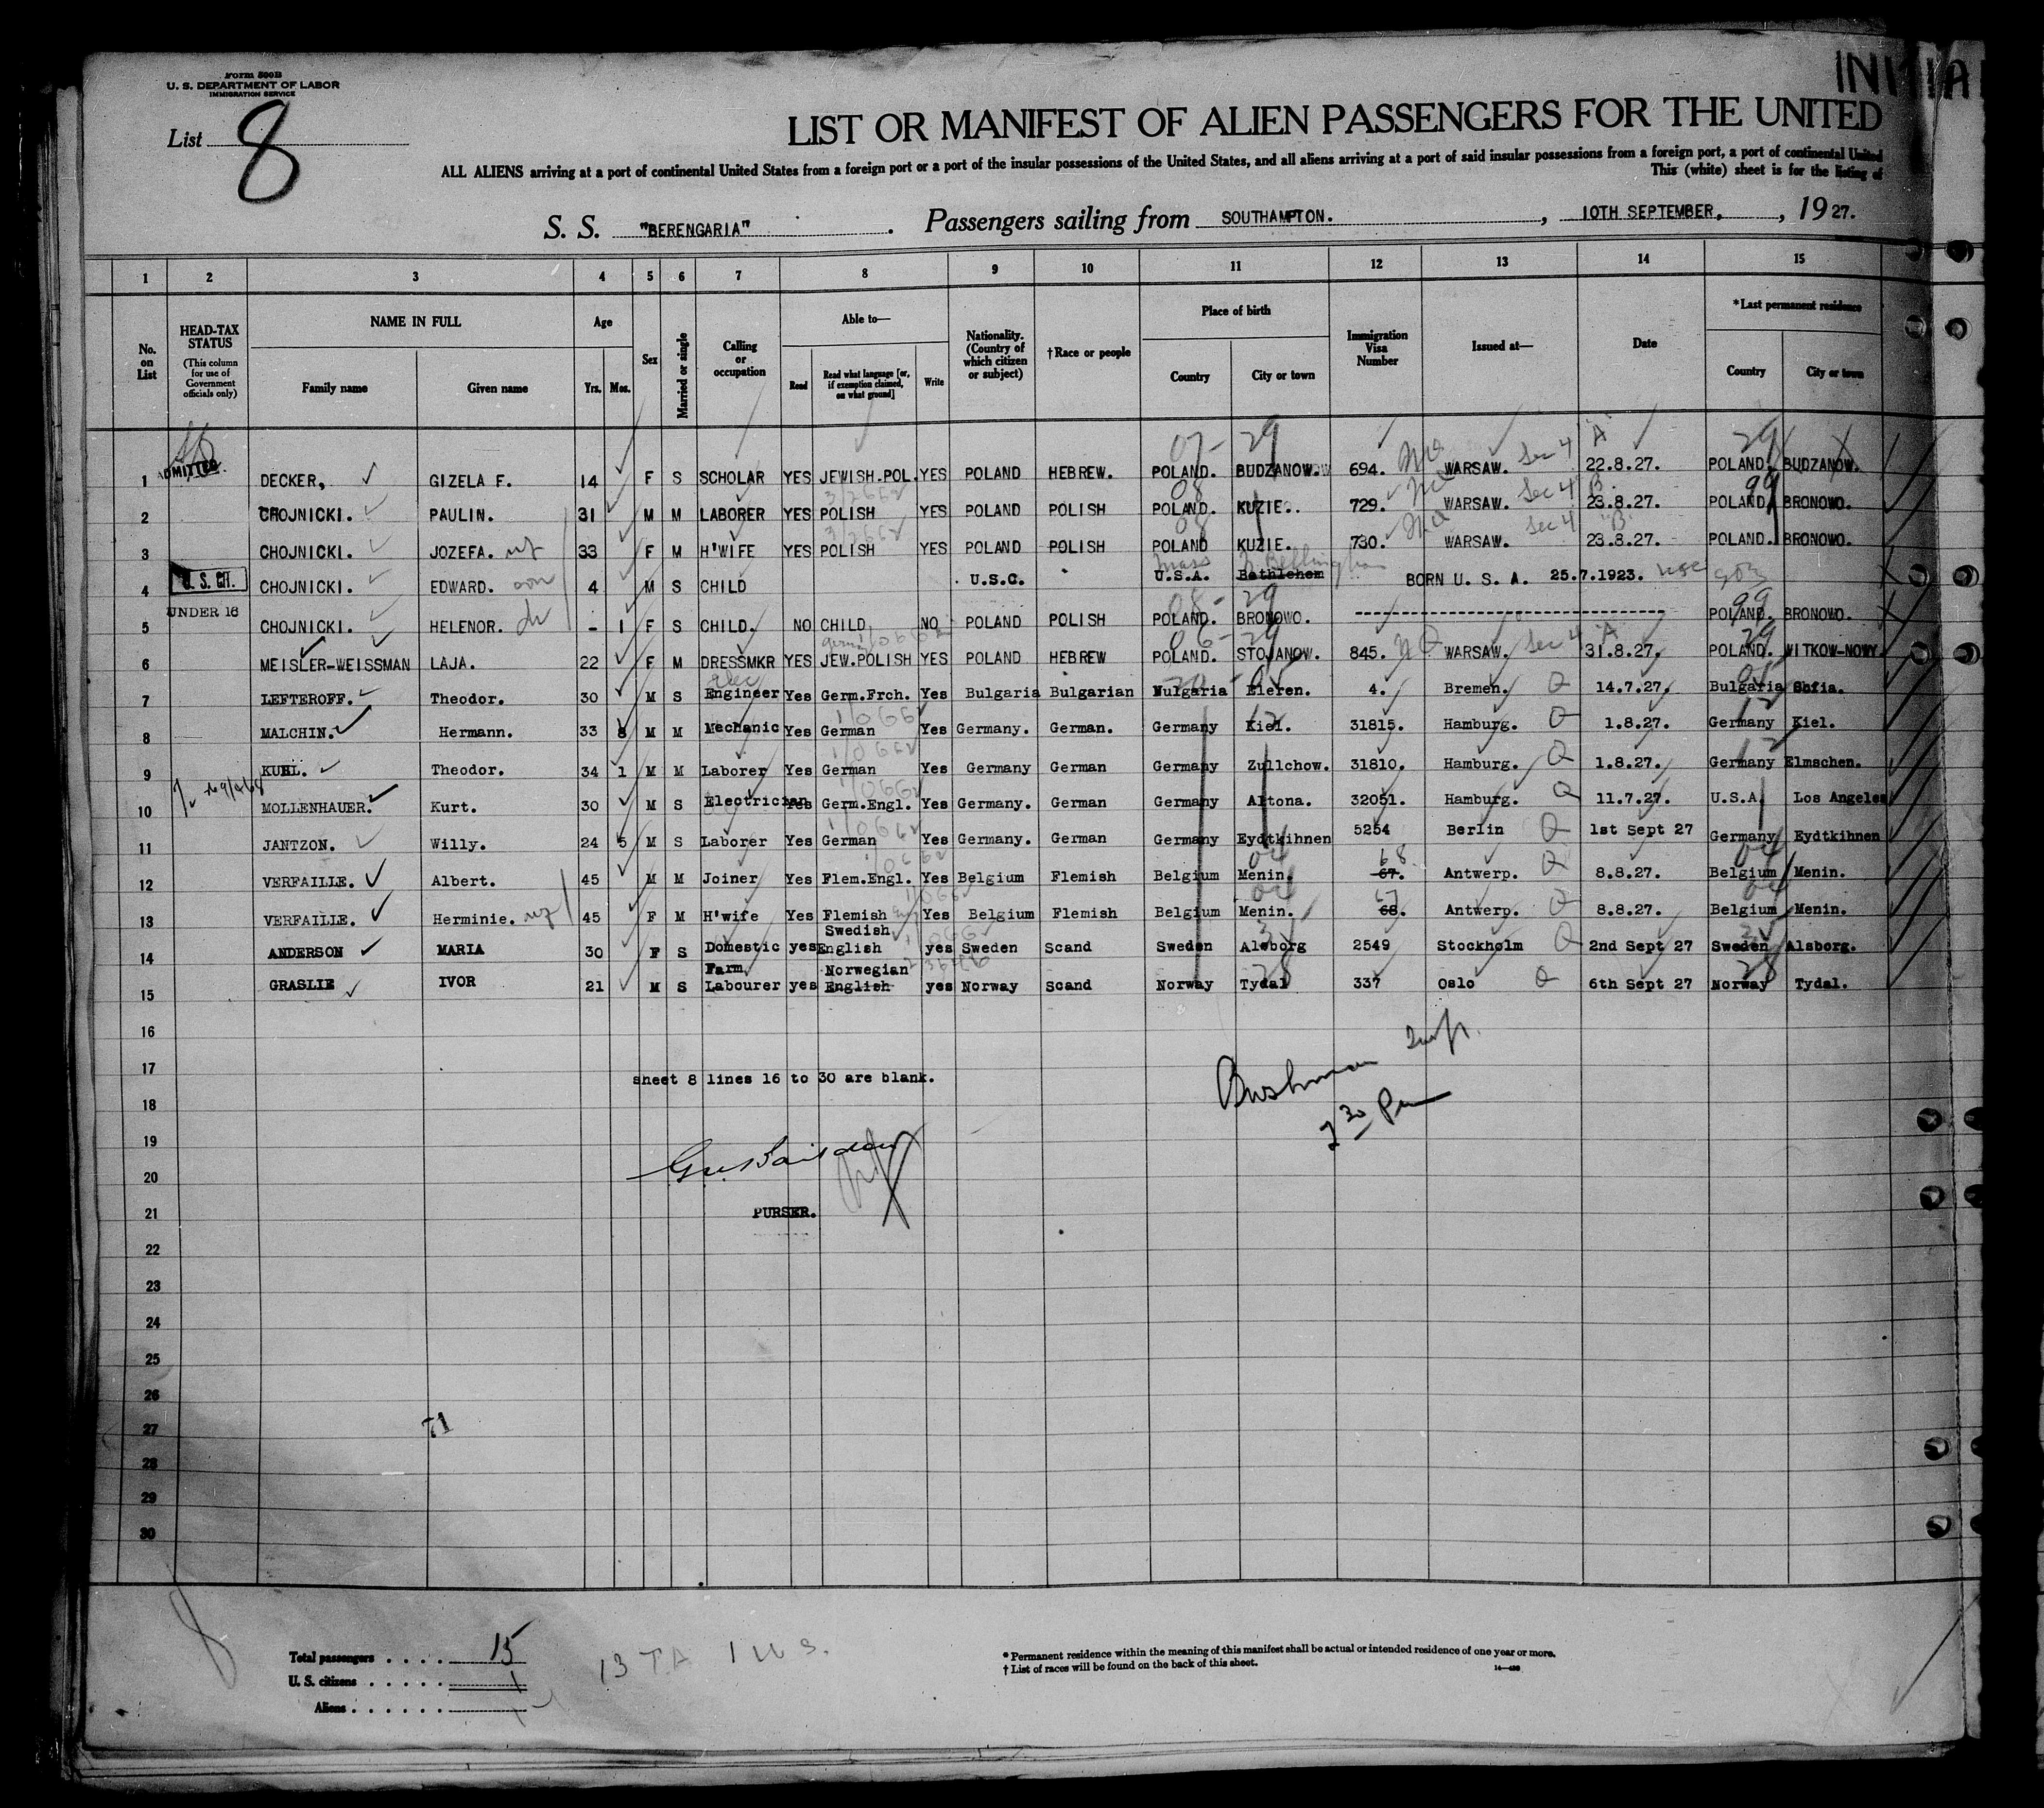 INITIA
Form 500B
U. S. DEPARTMENT OF LABOR
IMMIGRATION SERVICE
List 8
LIST OR MANIFEST OF ALIEN PASSENGERS FOR THE UNITED
ALL ALIENS arriving at a port of continental United States from a foreign port or a port of the insular possessions of the United States, and all aliens arriving at a port of said insular possessions from a foreign port, a port of continental United
This (white) sheet is for the listing of
S. S. "BERENGARIA" . Passengers sailing from SOUTHAMPTON. , 10TH SEPTEMBER, , 1927.
1 2 3 4 5 6 7 8 9 10 11 12 13 14 15
No. on List
HEAD-TAX STATUS (This column for use of Government officials only)
NAME IN FULL Family name Given name
Age Yrs. Mos.
Sex
Married or single
Calling or occupation
Able to— Read Read what language [or, if exemption claimed, on what ground] Write
Nationality. (Country of which citizen or subject)
†Race or people
Place of birth Country City or town
Immigration Visa Number
Issued at—
Date
*Last permanent residence Country City or town
07- 29 A 29
1 ADMITTED. DECKER, GIZELA F. 14 F S SCHOLAR YES JEWISH.POL. YES POLAND HEBREW. POLAND. BUDZANOW. 694. WARSAW. Sec 4 22.8.27. POLAND. BUDZANOW.
2 CHOJNICKI. PAULIN. 31 M M LABORER YES POLISH YES POLAND POLISH POLAND. KUZIE.. 729. WARSAW. Sec 4 B. 23.8.27. POLAND. BRONOWO.
3 CHOJNICKI. JOZEFA. wf 33 F M H'WIFE YES POLISH YES POLAND POLISH POLAND KUZIE. 730. WARSAW. Sec 4 "B" 23.8.27. POLAND. BRONOWO.
Mass Bellingham
4 U. S. CIT. CHOJNICKI. EDWARD. son 4 M S CHILD U.S.C. U.S.A. Bethlehem BORN U. S. A. 25.7.1923. USC
UNDER 16
5 CHOJNICKI. HELENOR. dr - 1 F S CHILD. NO CHILD NO POLAND POLISH POLAND. BRONOWO. POLAND. BRONOWO.
6 MEISLER-WEISSMAN LAJA. 22 F M DRESSMKR YES JEW.POLISH YES POLAND HEBREW POLAND. STOJANOW. 845. WARSAW. Sec 4 "A" 31.8.27. POLAND. WITKOW-NOWY.
7 LEFTEROFF. Theodor. 30 M S Elec Engineer Yes Germ.Frch. Yes Bulgaria Bulgarian Nulgaria Eleren. 4. Bremen. Q 14.7.27. Bulgaria Sofia.
8 MALCHIN. Hermann. 33 8 M M Mechanic Yes German Yes Germany. German. Germany Kiel. 31815. Hamburg. Q 1.8.27. Germany Kiel.
9 KUHL. Theodor. 34 1 M M Laborer Yes German Yes Germany German Germany Zullchow. 31810. Hamburg. Q 1.8.27. Germany Elmschen.
10 MOLLENHAUER. Kurt. 30 M S Electrician Yes Germ.Engl. Yes Germany. German Germany Altona. 32051. Hamburg. Q 11.7.27. U.S.A Los Angeles
11 JANTZON. Willy. 24 5 M S Laborer Yes German Yes Germany. German Germany Eydtkihnen 5254 Berlin Q 1st Sept 27 Germany Eydtkihnen
12 VERFAILLE. Albert. 45 M M Joiner Yes Flem.Engl. Yes Belgium Flemish Belgium Menin. 68. 67. Antwerp. Q 8.8.27. Belgium Menin.
13 VERFAILLE. Herminie. wf 45 F M H'wife Yes Flemish Yes Belgium Flemish Belgium Menin. 67 68. Antwerp. Q 8.8.27. Belgium Menin.
14 ANDERSON MARIA 30 F S Domestic yes Swedish English yes Sweden Scand Sweden Alsborg 2549 Stockholm Q 2nd Sept 27 Sweden Alsborg.
15 GRASLIE IVOR 21 M S Farm Labourer yes Norwegian English yes Norway Scand Norway Tydal 337 Oslo Q 6th Sept 27 Norway Tydal.
16
17
sheet 8 lines 16 to 30 are blank.
Bushman Insp.
2 30 Pm
18
19
20
21 PURSER.
22
23
24
25
26
27 71
28
29
30
Total passengers . . . . 15
U. S. citizens . . . . . 1
Aliens . . . . . .
13 T.A 1 U S.
* Permanent residence within the meaning of this manifest shall be actual or intended residence of one year or more.
† List of races will be found on the back of this sheet.